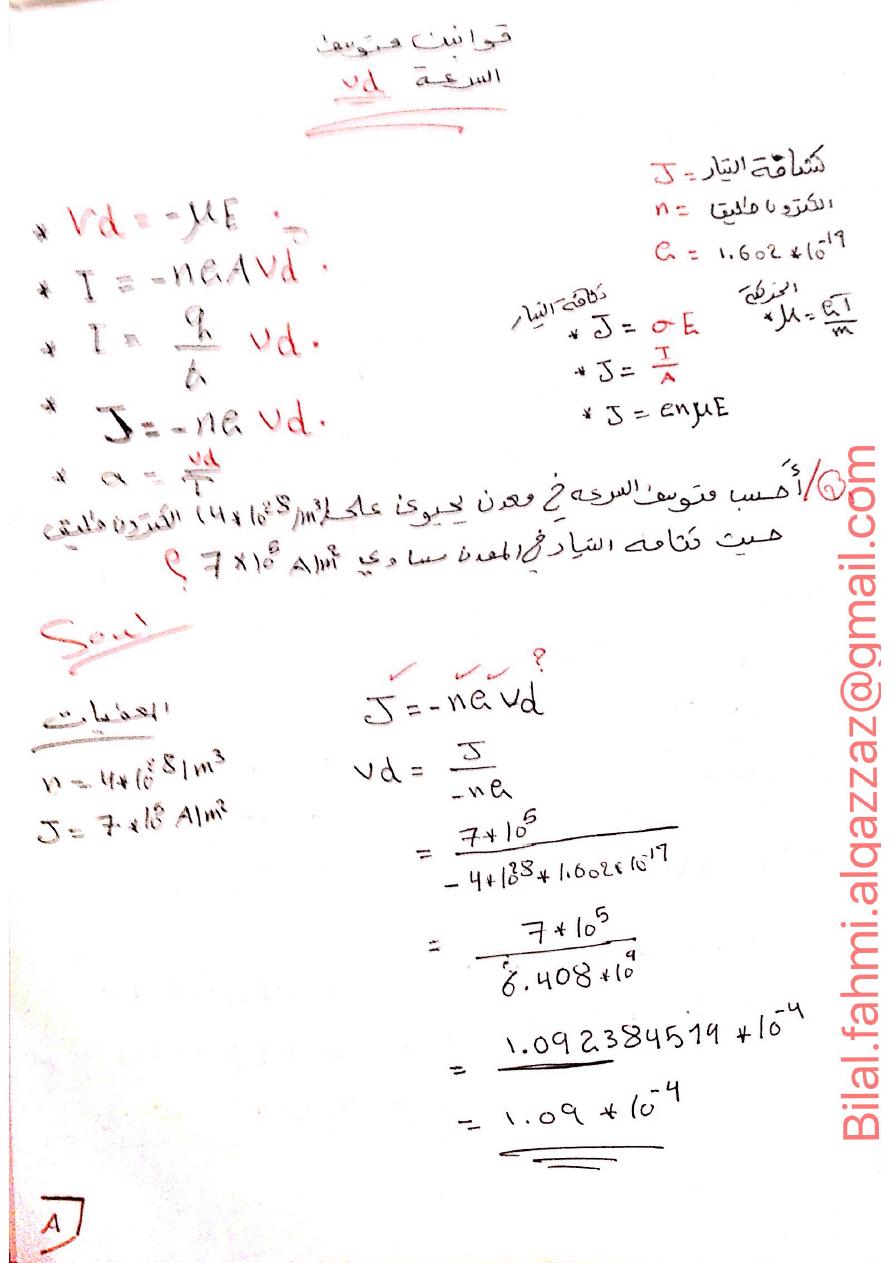 قوانين متوسط
السرعة vd
J = كثافة التيار
n = الكترونا طليق
e = 1.602 * 10^-19
* Vd = -μE .
* I = -neAVd .
* I = q/ vd .
* J = -ne vd .
* a = vd/T
الحركة
* μ = eT/m
كثافة التيار
* J = σE
* J = I/A
* J = enμE
Q/ أحسب متوسط السرعه في معدن يحتوي على (4*10^28/m^3) الكترون طليق
حيث كثافه التيار في المعدن مساوي 7*10^5 A/m^2 ؟
المعطيات
n = 4*10^28/m^3
J = 7*10^5 A/m^2
?
J = -ne vd
vd = J/-ne
= 7*10^5/-4*10^28*1.602*10^-19
= 7*10^5/6.408*10^9
= 1.092384519 *10^-4
= 1.09 * 10^-4
A
Bilal.fahmi.alqazzaz@gmail.com